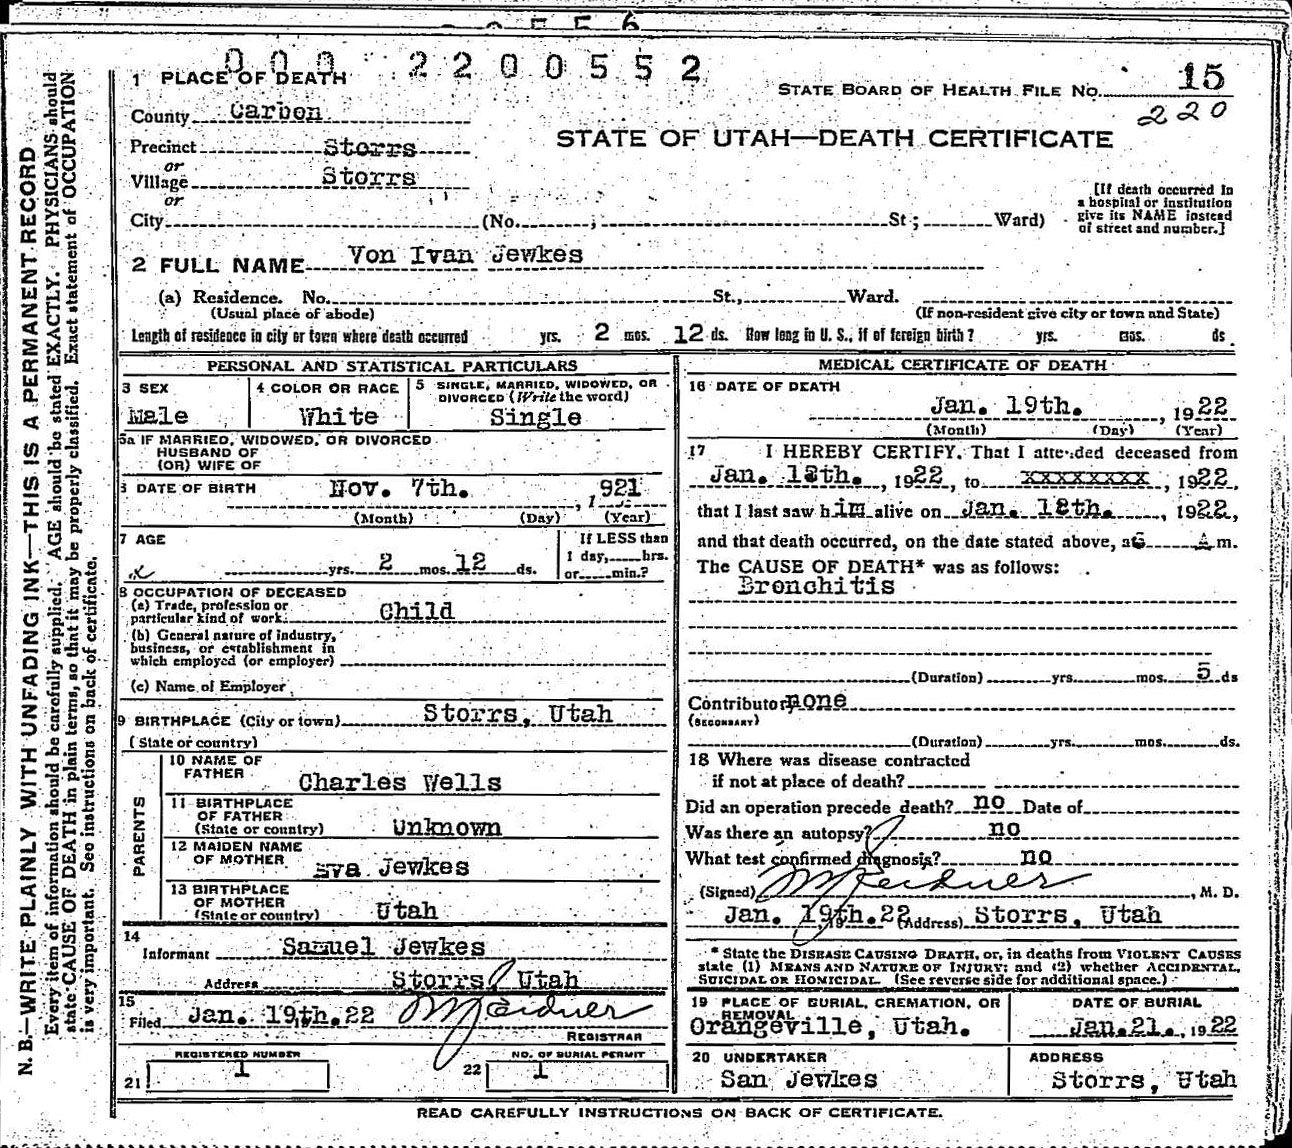 000 2200552
1 PLACE OF DEATH
STATE BOARD OF HEALTH FILE NO. 15
220
County Carbon
STATE OF UTAH—DEATH CERTIFICATE
Precinct Storrs
or
Village Storrs
or
City (No. ; St; Ward)
[If death occurred in
a hospital or institution
give its NAME instead
of street and number.]
2 FULL NAME Von Ivan Jewkes
(a) Residence. No. St., Ward.
(Usual place of abode) (If non-resident give city or town and State)
Length of residence in city or town where death occurred yrs. 2 mos. 12 ds. How long in U. S., if of foreign birth? yrs. mos. ds.
PERSONAL AND STATISTICAL PARTICULARS
3 SEX
Male
4 COLOR OR RACE
White
5 SINGLE, MARRIED, WIDOWED, OR
DIVORCED (Write the word)
Single
5a IF MARRIED, WIDOWED, OR DIVORCED
HUSBAND OF
(OR) WIFE OF
6 DATE OF BIRTH Nov. 7th. , 1921
(Month) (Day) (Year)
7 AGE
yrs. 2 mos. 12 ds.
If LESS than
1 day, hrs.
or min.?
8 OCCUPATION OF DECEASED
(a) Trade, profession or
particular kind of work Child
(b) General nature of industry,
business, or establishment in
which employed (or employer)
(c) Name of Employer
9 BIRTHPLACE (City or town) Storrs, Utah
(State or country)
PARENTS
10 NAME OF
FATHER Charles Wells
11 BIRTHPLACE
OF FATHER
(State or country) Unknown
12 MAIDEN NAME
OF MOTHER Eva Jewkes
13 BIRTHPLACE
OF MOTHER
(State or country) Utah
14
Informant Samuel Jewkes
Address Storrs, Utah
15
Filed Jan. 19th. 22
REGISTRAR
REGISTERED NUMBER
21 1
NO. OF BURIAL PERMIT
22 1
MEDICAL CERTIFICATE OF DEATH
16 DATE OF DEATH
Jan. 19th. , 1922
(Month) (Day) (Year)
17 I HEREBY CERTIFY, That I attended deceased from
Jan. 18th. , 1922, to XXXXXXXX , 1922,
that I last saw him alive on Jan. 18th. , 1922,
and that death occurred, on the date stated above, at 6 A m.
The CAUSE OF DEATH* was as follows:
Bronchitis
(Duration) yrs. mos. 5 ds
Contributory none
(SECONDARY)
(Duration) yrs. mos. ds.
18 Where was disease contracted
if not at place of death?
Did an operation precede death? no Date of
Was there an autopsy? no
What test confirmed diagnosis? no
(Signed) , M. D.
Jan. 19th. 22 (Address) Storrs, Utah
* State the DISEASE CAUSING DEATH, or, in deaths from VIOLENT CAUSES
state (1) MEANS AND NATURE OF INJURY; and (2) whether ACCIDENTAL,
SUICIDAL OR HOMICIDAL. (See reverse side for additional space.)
19 PLACE OF BURIAL, CREMATION, OR
REMOVAL
Orangeville, Utah.
DATE OF BURIAL
Jan. 21. , 1922
20 UNDERTAKER
San Jewkes
ADDRESS
Storrs, Utah
READ CAREFULLY INSTRUCTIONS ON BACK OF CERTIFICATE.
N. B.—WRITE PLAINLY WITH UNFADING INK—THIS IS A PERMANENT RECORD
Every item of information should be carefully supplied. AGE should be stated EXACTLY. PHYSICIANS should
state CAUSE OF DEATH in plain terms, so that it may be properly classified. Exact statement of OCCUPATION
is very important. See instructions on back of certificate.